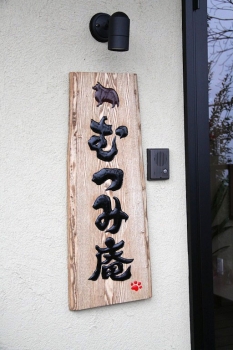 むつみ庵